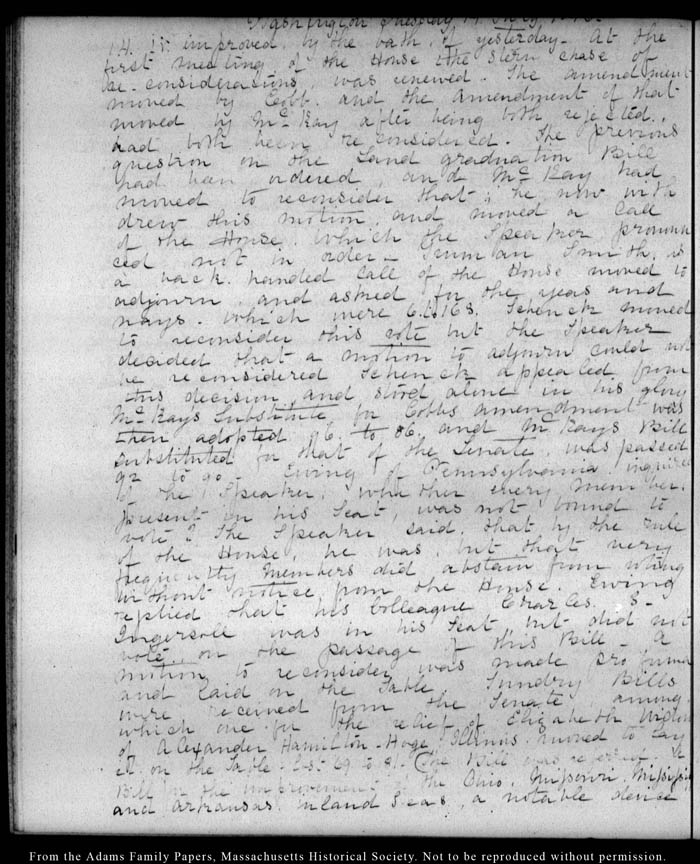 Washington Tuesday 14. July 1846.
14. IV. improved by the bath of yesterday. At the
first meeting of the House the stern chase of
re-considerations, was renewed. The amendment
moved by Cobb. and the amendment of that
moved by Mc Kay after being both rejected,
had both been re considered. The previous
question on the Land graduation Bill
had been ordered, and Mc Kay had
moved to reconsider that; he now with
drew this motion, and moved a Call
of the House, which the Speaker pronoun
ced not in order— Truman Smith, as
a back-handed Call of the House moved to
adjourn, and asked for the yeas and
nays. which were 168. Schenck moved
to reconsider this vote but the Speaker
decided that a motion to adjourn could not
be reconsidered Schenck appealed from
this decision, and stood alone in his glory
Mc Kay's Substitute for Cobbs amendment was
then adopted to 86. and Mc Kays Bill
substituted for that of the Senate, was passed
92 to 90— Ewing of Pennsylvania inquired
of the Speaker, whether every member,
present in his Seat, was not bound to
vote? The Speaker said, that by the rule
of the House, he was, but that very
frequently Members did abstain from voting
without notice from the House. Ewing
replied that his Colleague Charles. J—
Ingersoll was in his Seat but did not
vote, on the passage of this Bill— a
motion to reconsider was made pro forma
and laid on the Table. Sundry Bills
were received from the Senate, among
which one for the relief of Elizabeth Widow
of Alexander Hamilton. Hoge, Illinois. moved to lay
it on the Table. lost 69 to 81. The Bill was
Bill for the improvement the Ohio, Missouri, Mississippi
and Arkansas inland Seas, a notable device
From the Adams Family Papers, Massachusetts Historical Society. Not to be reproduced without permission.